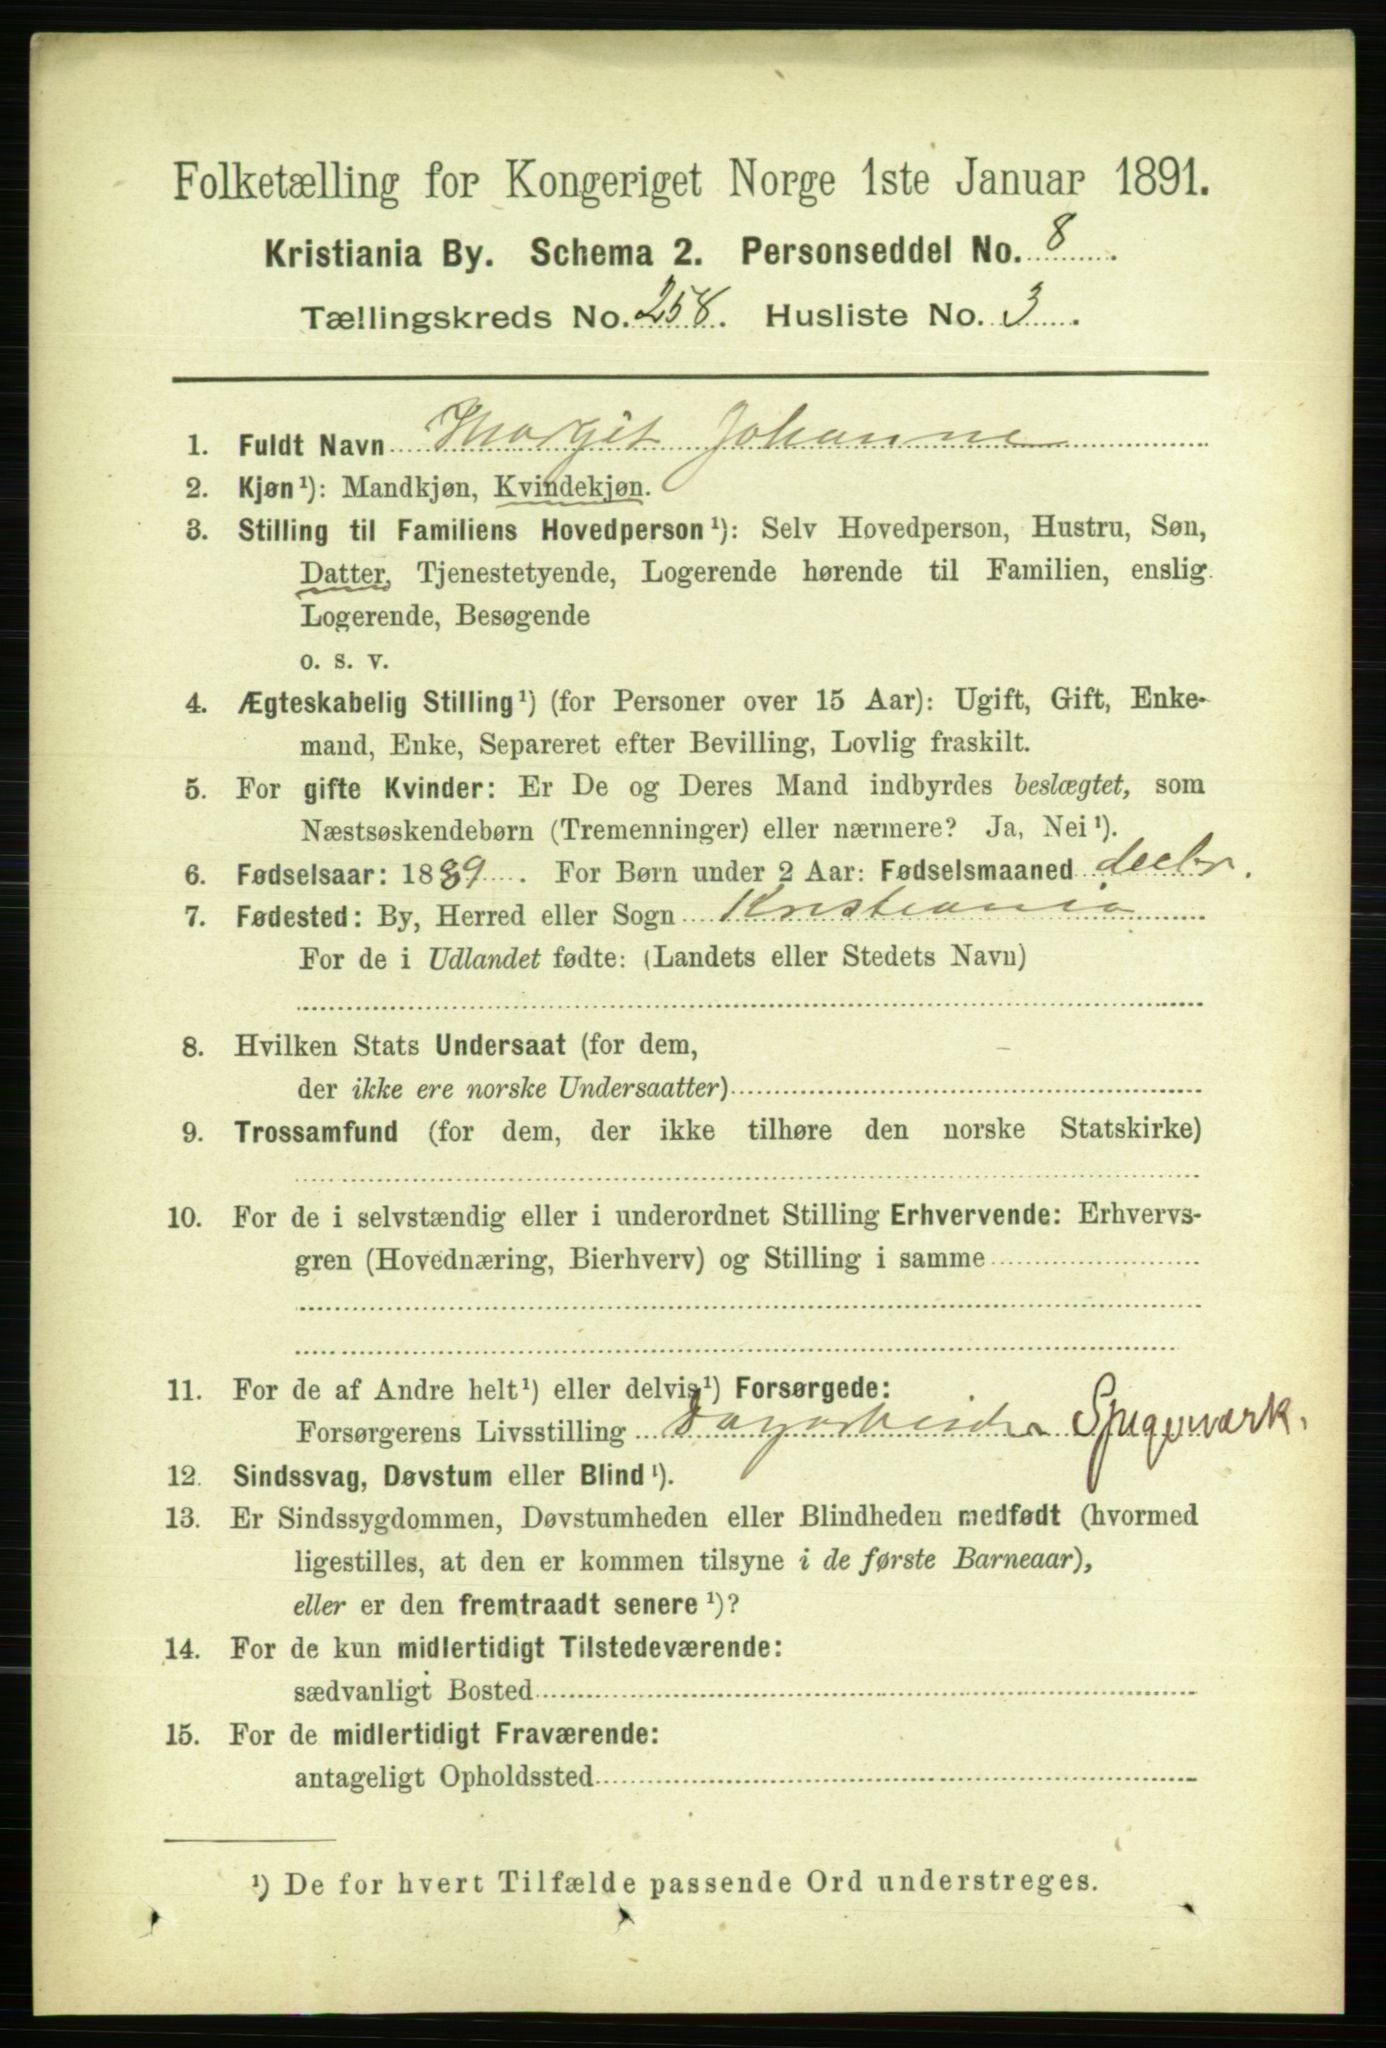 Folketælling for Kongeriget Norge 1ste Januar 1891.
Kristiania By. Schema 2. Personseddel No. 8.
Tællingskreds No. 258. Husliste No. 3.
1. Fuldt Navn Margit Johanne
2. Kjøn¹): Mandkjøn, Kvindekjøn.
3. Stilling til Familiens Hovedperson¹): Selv Hovedperson, Hustru, Søn,
Datter, Tjenestetyende, Logerende hørende til Familien, enslig
Logerende, Besøgende
o. s. v.
4. Ægteskabelig Stilling¹) (for Personer over 15 Aar): Ugift, Gift, Enke-
mand, Enke, Separeret efter Bevilling, Lovlig fraskilt.
5. For gifte Kvinder: Er De og Deres Mand indbyrdes beslægtet, som
Næstsøskendebørn (Tremenninger) eller nærmere? Ja, Nei¹).
6. Fødselsaar: 1889. For Børn under 2 Aar: Fødselsmaaned decbr.
7. Fødested: By, Herred eller Sogn Kristiania
For de i Udlandet fødte: (Landets eller Stedets Navn)
8. Hvilken Stats Undersaat (for dem,
der ikke ere norske Undersaatter)
9. Trossamfund (for dem, der ikke tilhøre den norske Statskirke)
10. For de i selvstændig eller i underordnet Stilling Erhvervende: Erhvervs-
gren (Hovednæring, Bierhverv) og Stilling i samme
11. For de af Andre helt¹) eller delvis¹) Forsørgede:
Forsørgerens Livsstilling Dagarbeider Spigerværk.
12. Sindssvag, Døvstum eller Blind¹).
13. Er Sindssygdommen, Døvstumheden eller Blindheden medfødt (hvormed
ligestilles, at den er kommen tilsyne i de første Barneaar),
eller er den fremtraadt senere¹)?
14. For de kun midlertidigt Tilstedeværende:
sædvanligt Bosted
15. For de midlertidigt Fraværende:
antageligt Opholdssted
¹) De for hvert Tilfælde passende Ord understreges.